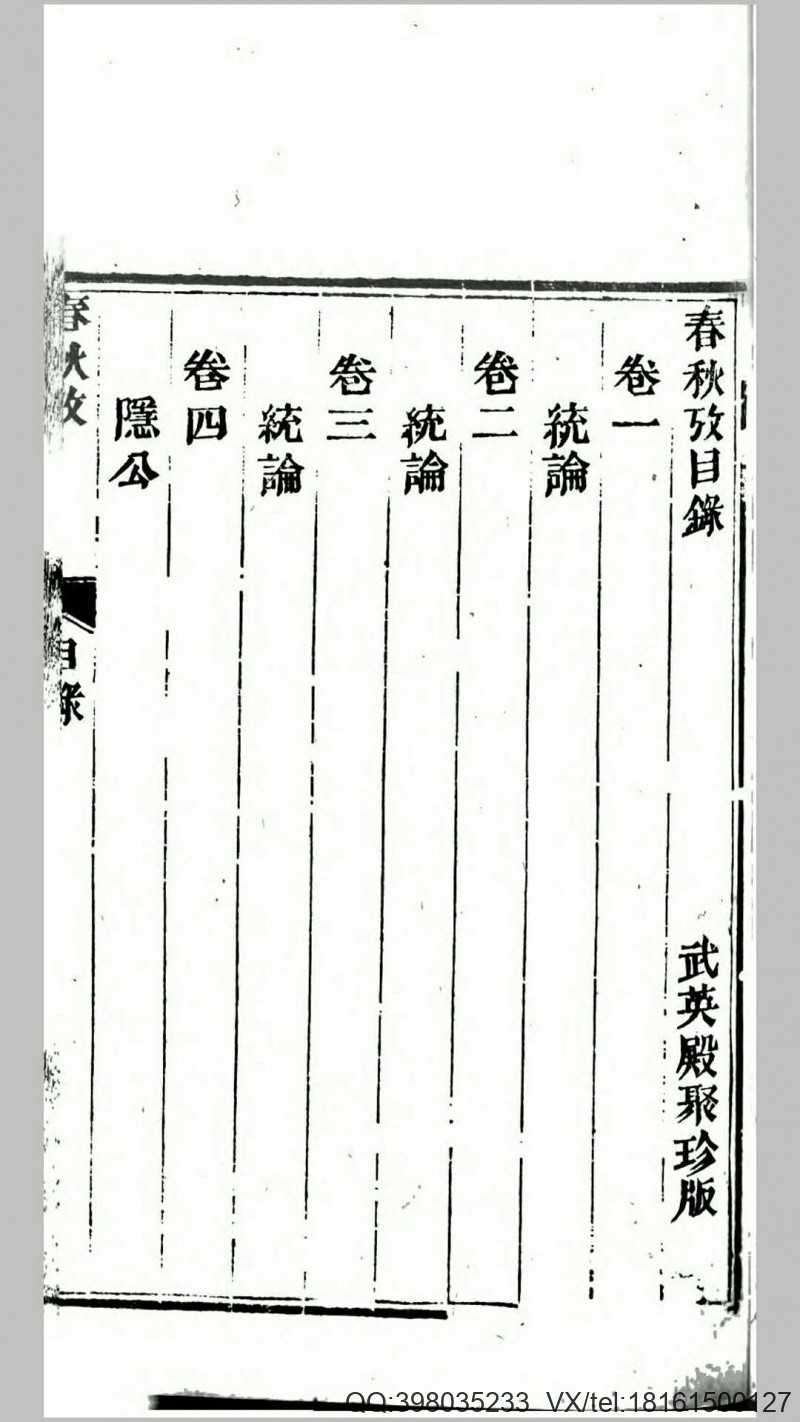 春秋攷目錄
武英殿聚珍版
卷一
統論
卷二
統論
卷三
統論
卷四
隱公
春秋攷
目錄
QQ:398035233 VX/tel:18161500127